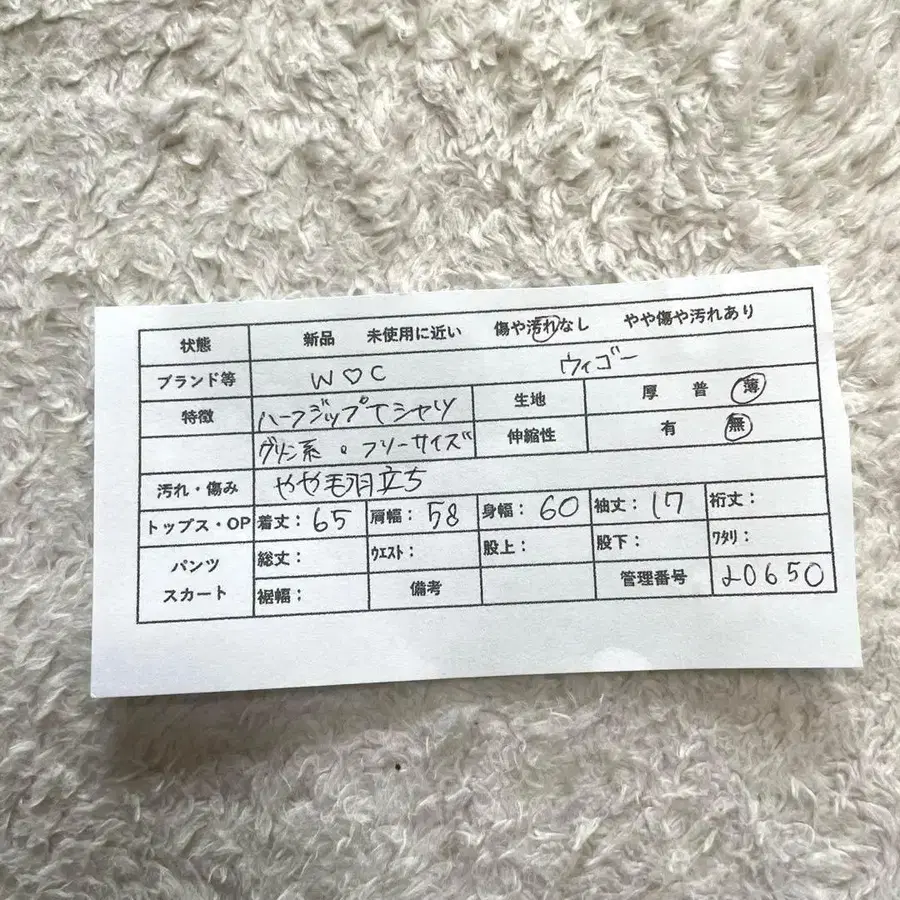 状態 新品 未使用に近い 傷や汚れなし やや傷や汚れあり
ブランド等 W♡C ウィゴー
特徴 ハーフジップTシャツ 生地 厚 普 薄
グリーン系・フリーサイズ 伸縮性 有 無
汚れ・傷み やや毛羽立ち
トップス・OP 着丈：65 肩幅：58 身幅：60 袖丈：17 裄丈：
パンツ 総丈： ウエスト： 股上： 股下： ワタリ：
スカート 裾幅： 備考 管理番号 20650